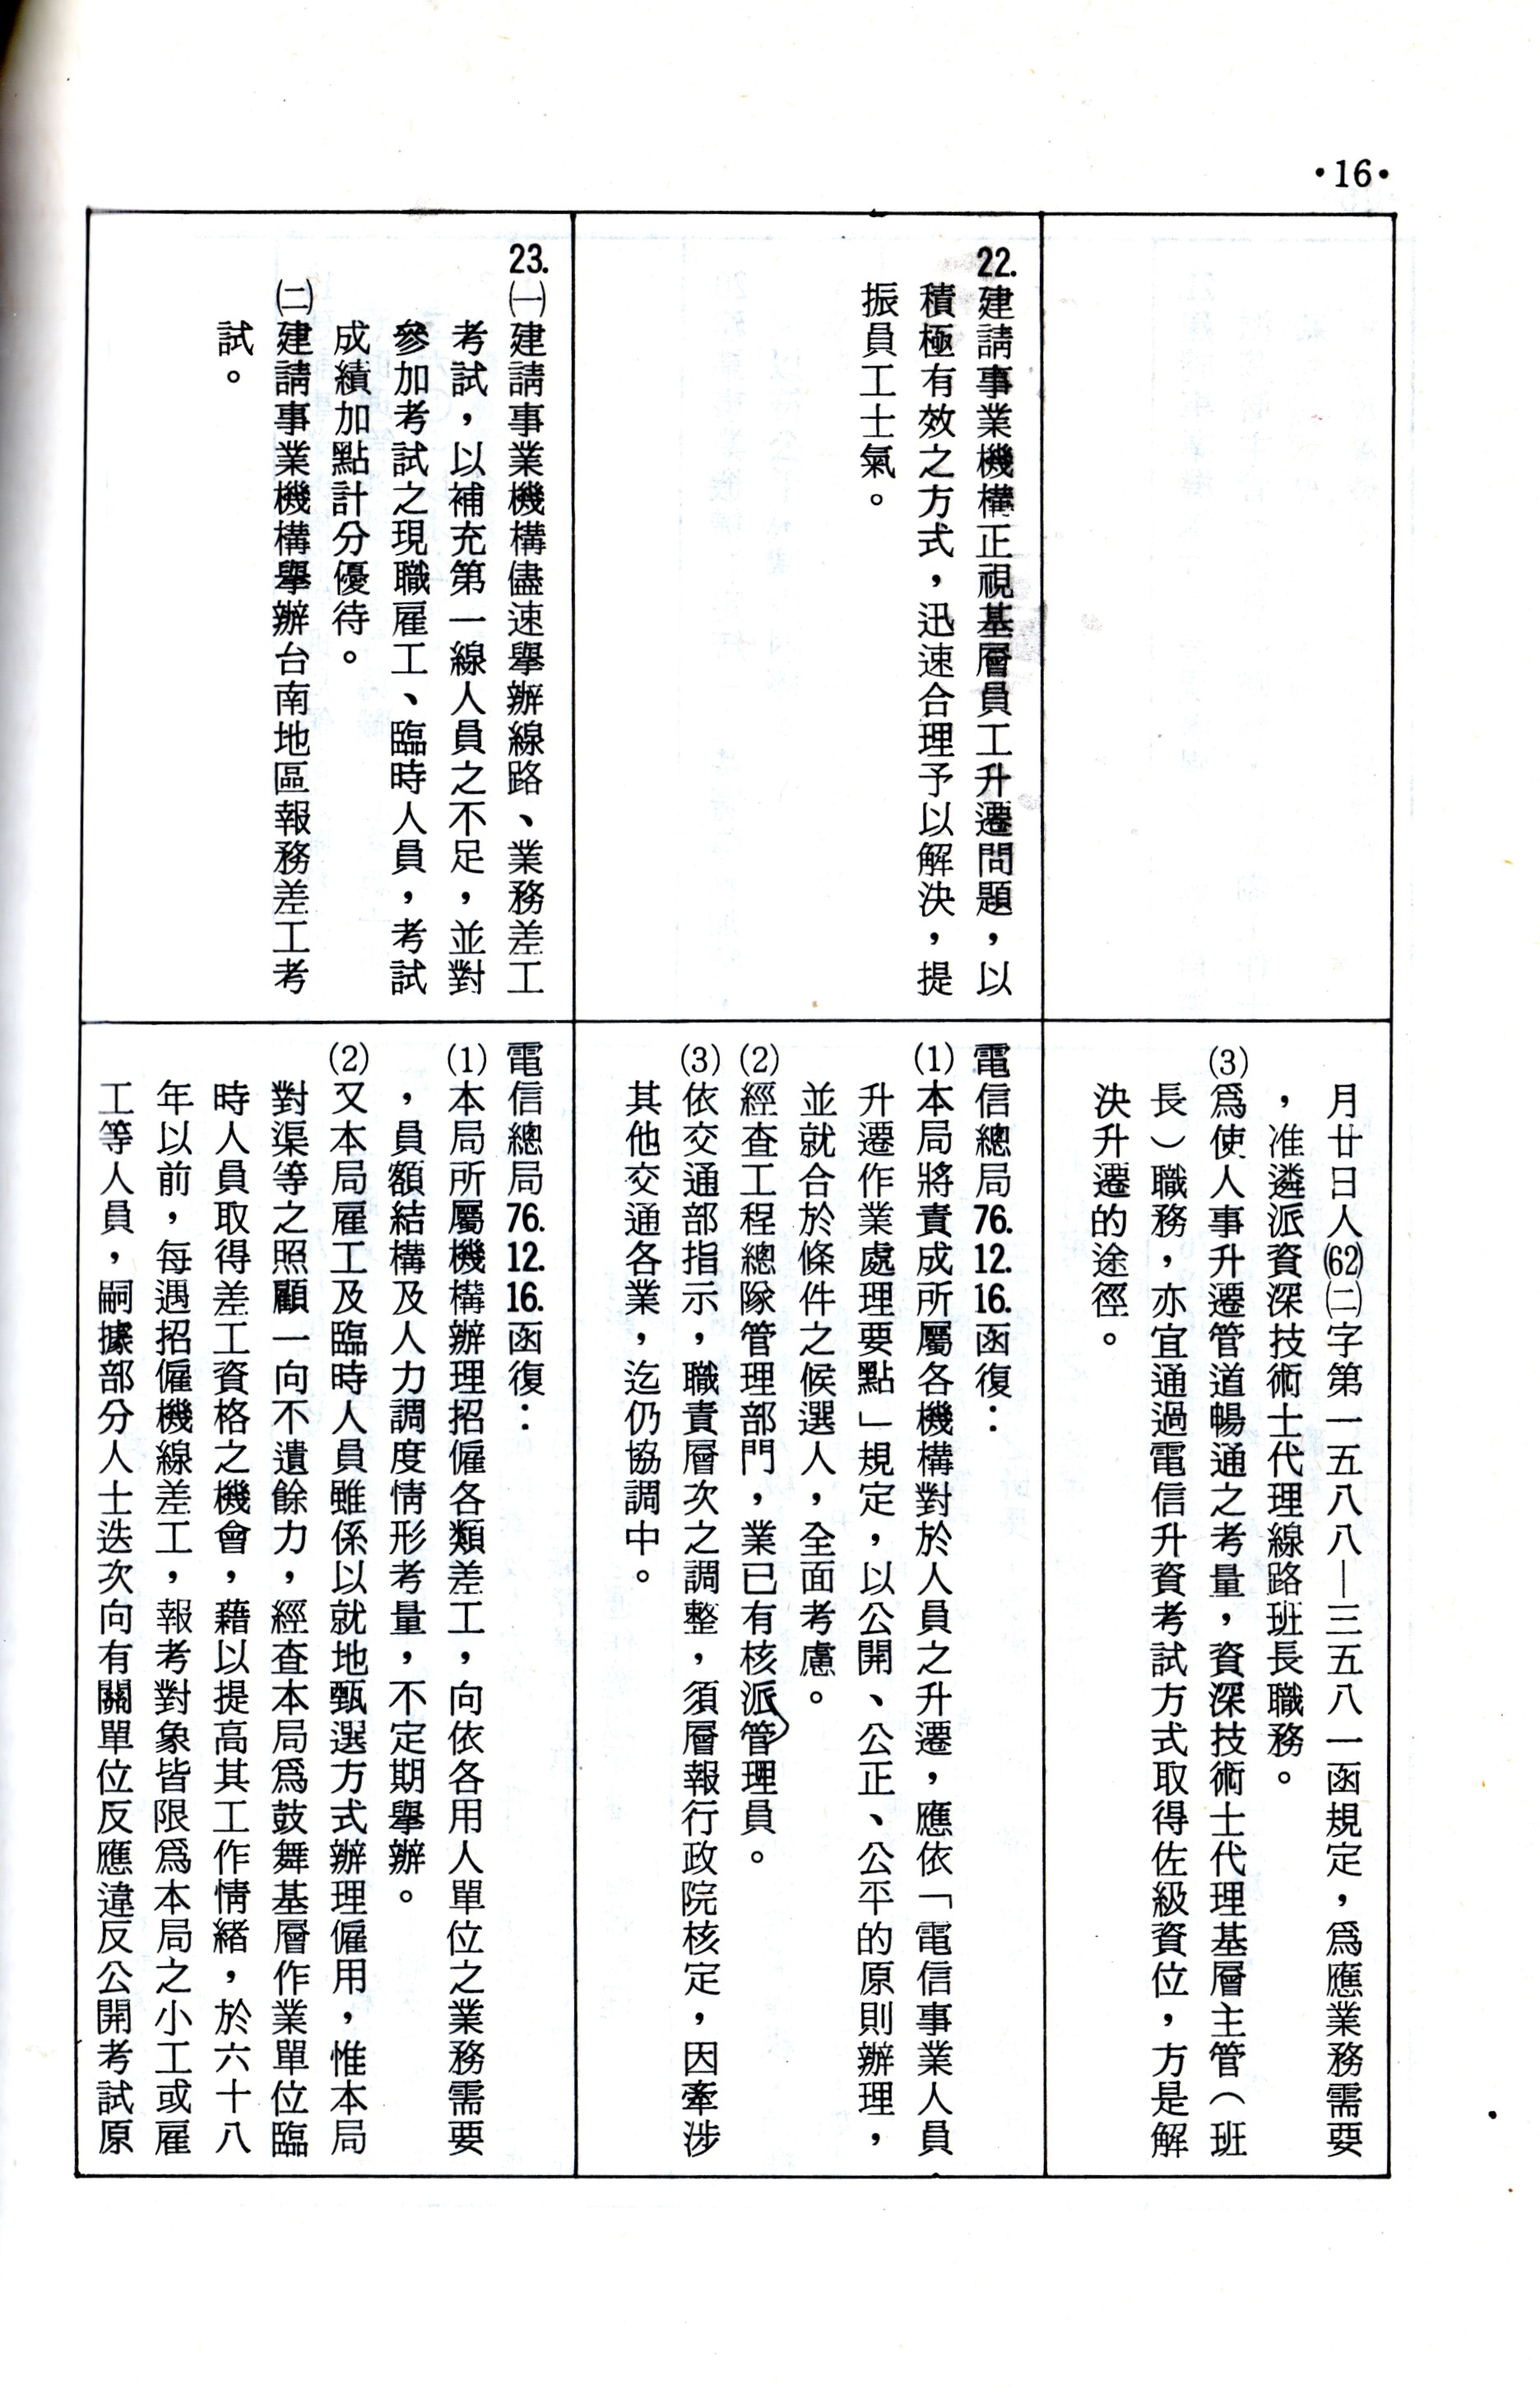 •16•
月廿日人(62)㈡字第一五八八—三五八一函規定，爲應業務需要
，准遴派資深技術士代理線路班長職務。
(3)爲使人事升遷管道暢通之考量，資深技術士代理基層主管（班
長）職務，亦宜通過電信升資考試方式取得佐級資位，方是解
決升遷的途徑。
22.建請事業機構正視基層員工升遷問題，以
積極有效之方式，迅速合理予以解決，提
振員工士氣。
電信總局76.12.16.函復：
(1)本局將責成所屬各機構對於人員之升遷，應依「電信事業人員
升遷作業處理要點」規定，以公開、公正、公平的原則辦理，
並就合於條件之候選人，全面考慮。
(2)經查工程總隊管理部門，業已有核派管理員。
(3)依交通部指示，職責層次之調整，須層報行政院核定，因牽涉
其他交通各業，迄仍協調中。
23.㈠建請事業機構儘速舉辦線路、業務差工
考試，以補充第一線人員之不足，並對
參加考試之現職雇工、臨時人員，考試
成績加點計分優待。
㈡建請事業機構舉辦台南地區報務差工考
試。
電信總局76.12.16.函復：
(1)本局所屬機構辦理招僱各類差工，向依各用人單位之業務需要
，員額結構及人力調度情形考量，不定期舉辦。
(2)又本局雇工及臨時人員雖係以就地甄選方式辦理僱用，惟本局
對渠等之照顧一向不遺餘力，經查本局爲鼓舞基層作業單位臨
時人員取得差工資格之機會，藉以提高其工作情緒，於六十八
年以前，每遇招僱機線差工，報考對象皆限爲本局之小工或雇
工等人員，嗣據部分人士迭次向有關單位反應違反公開考試原